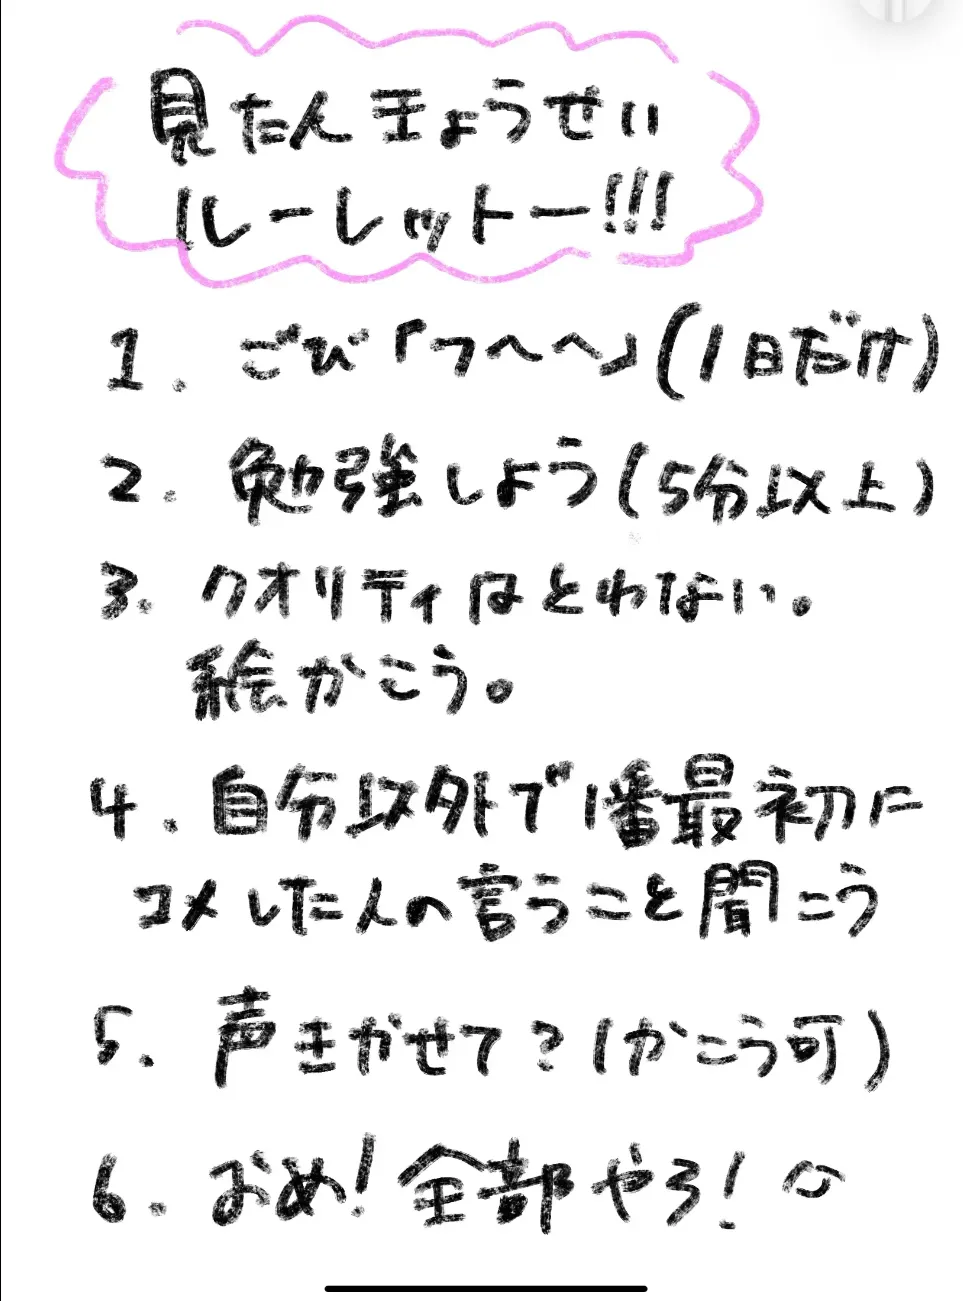 見たんきょうせい
ルーレットー!!!
1. ごび「フヘヘ」(1日だけ)
2. 勉強しよう(5分以上)
3. クオリティはとわない。
絵かこう。
4. 自分以外で1番最初に
コメした人の言うこと聞こう
5. 声きかせて?(かこう可)
6. おめ!全部やろ!